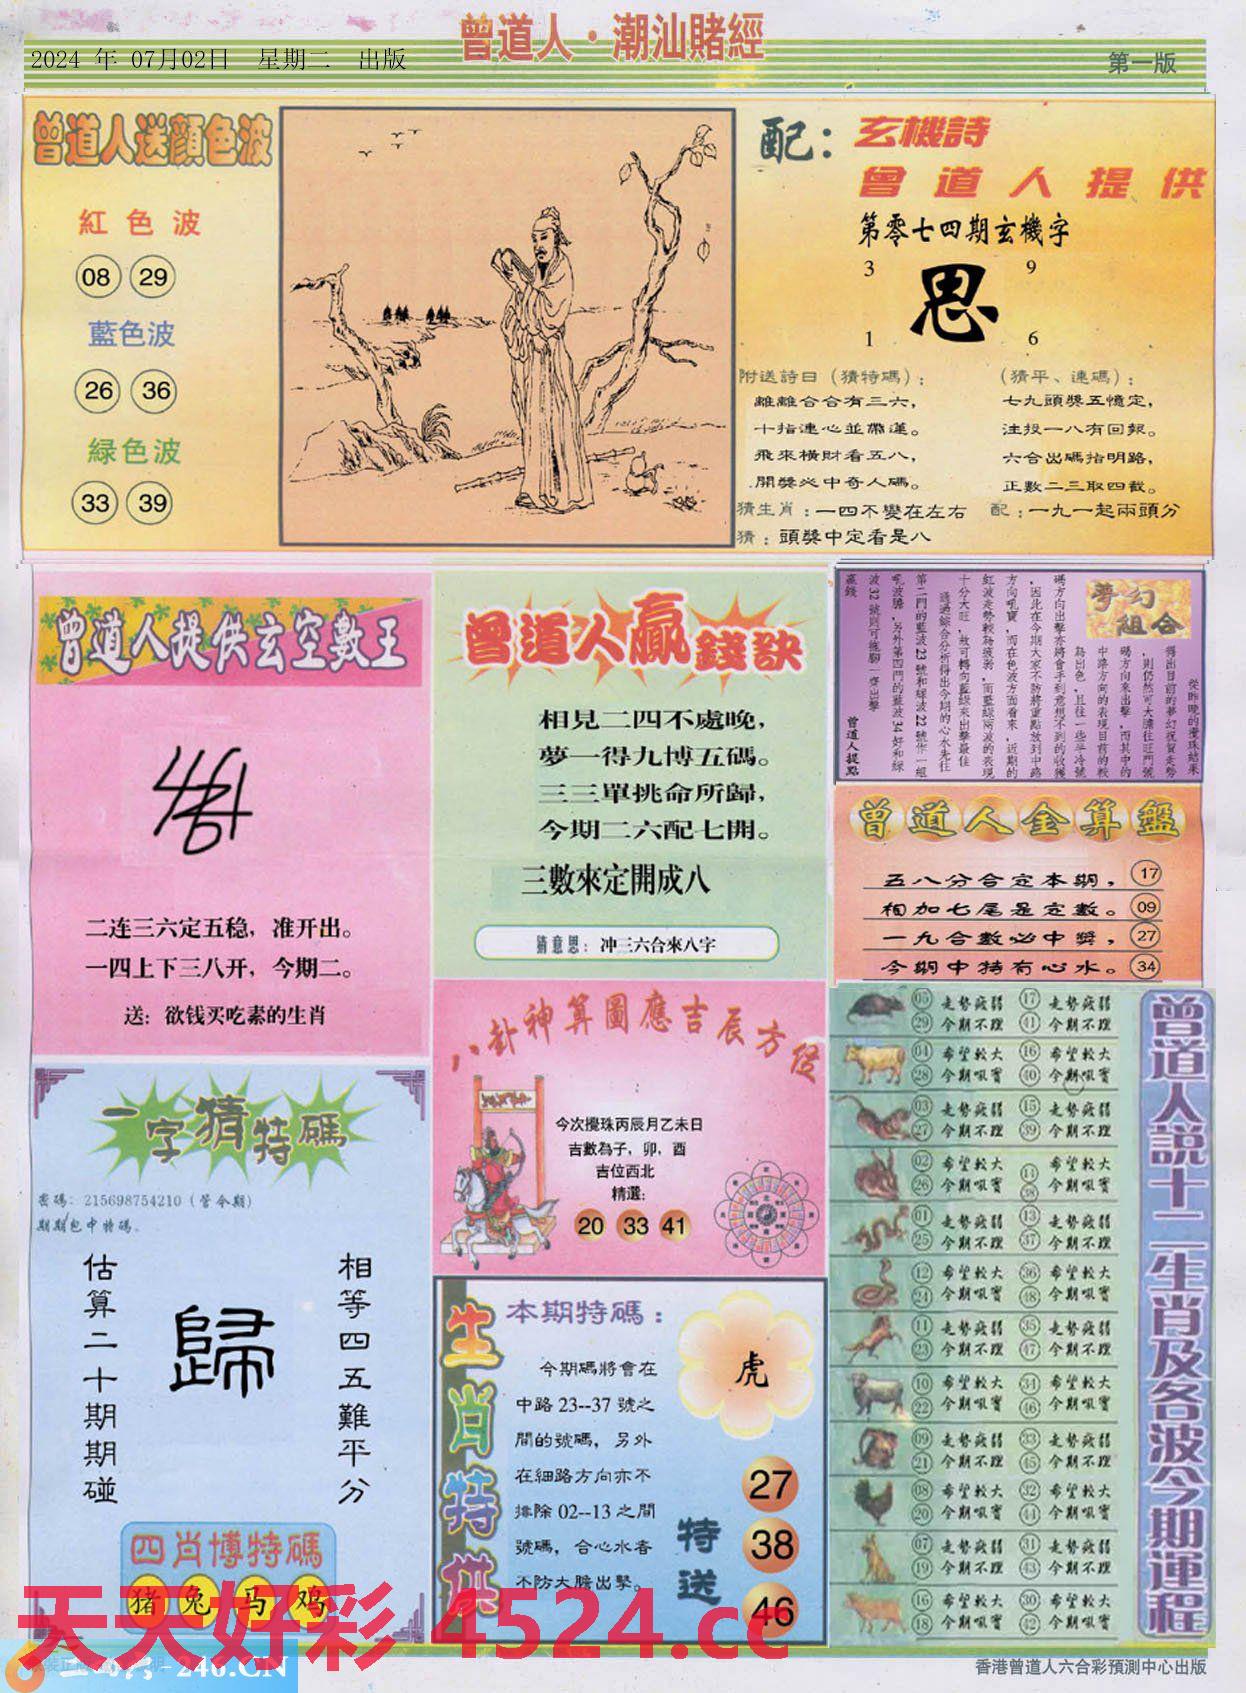 曾道人·潮汕賭經
2024 年 07月02日 星期二 出版
第一版
曾道人送顔色波
紅色波
08 29
藍色波
26 36
緑色波
33 39
配：玄機詩
曾道人提供
第零七四期玄機字
3 9
思
1 6
附送詩曰（猜特碼）：
離離合合有三六，
十指連心並帶漢。
飛來橫財看五八，
開獎必中奇人碼。
（猜平、連碼）：
七九頭獎五憶定，
注投一八有回報。
六合出碼指明路，
正數二三取四截。
猜生肖：一四不變在左右
配：一九一起兩頭分
猜：頭獎中定看是八
曾道人提供玄空數王
二连三六定五稳，准开出。
一四上下三八开，今期二。
送：欲钱买吃素的生肖
曾道人贏錢訣
相見二四不處晚，
夢一得九博五碼。
三三單挑命所歸，
今期二六配七開。
三數來定開成八
猜意思：冲三六合來八字
夢幻組合
從昨晚的攪珠結果
得出目前的夢幻祝賀走勢
，則仍然可大膽往旺門號
碼方向來出擊，而其中的
中路方向的表現目前的較
為出色，且往一些半冷號
碼方向出擊亦將會手到意想不到的收獲
，因此在今期大家不防將重點放到中路
方向吼寶，而在色波方面看來，近期的
紅波走勢較為疲弱，而藍綠兩波的表現
十分大旺，故可轉向藍綠來出擊最佳
通過綜合分析得出今期的心水先往
第二門的藍波23號和綠波22號作一組
吼波膽，另外第四門的藍波34好和綠
波32號則可拖腳一齊出擊
贏錢
曾道人提點
曾道人金算盤
五八分合定本期， 17
相加七尾是定數。 09
一九合數必中獎， 27
今期中特有心水。 34
八卦神算圖應吉辰方位
今次攪珠丙辰月乙未日
吉數為子，卯，酉
吉位西北
精選：
20 33 41
一字猜特碼
密碼：215698754210（管今期）
期期包中特碼.
估算二十期期碰
歸
相等四五難平分
四肖博特碼
猪 兔 马 鸡
生肖特供
本期特碼：
今期碼將會在
中路23--37號之
間的號碼，另外
在細路方向亦不
排除02--13之間
號碼，合心水者
不防大膽出擊。
虎
特送
27
38
46
曾道人說十二生肖及各波今期運程
05 走勢疲弱 17 走勢疲弱
29 今期不理 41 今期不理
04 希望較大 16 希望較大
28 今期吼寶 40 今期吼寶
03 走勢疲弱 15 走勢疲弱
27 今期不理 39 今期不理
02 希望較大 14 希望較大
26 今期吼寶 38 今期吼寶
01 走勢疲弱 13 走勢疲弱
25 今期不理 37 今期不理
12 希望較大 36 希望較大
24 今期吼寶 48 今期吼寶
11 走勢疲弱 35 走勢疲弱
23 今期不理 47 今期不理
10 希望較大 34 希望較大
22 今期吼寶 46 今期吼寶
09 走勢疲弱 33 走勢疲弱
21 今期不理 45 今期不理
08 希望較大 32 希望較大
20 今期吼寶 44 今期吼寶
07 走勢疲弱 31 走勢疲弱
19 今期不理 43 今期不理
16 希望較大 30 希望較大
18 今期吼寶 42 今期吼寶
天天好彩 4524.cc
-246.CN
香港曾道人六合彩預測中心出版